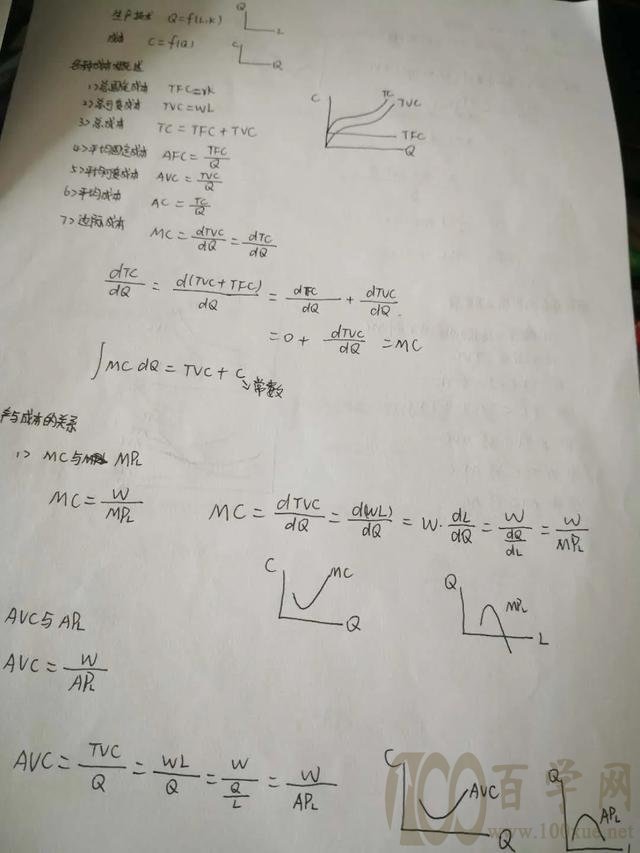 生产技术 Q=f(L,K) Q L
成本 C=f(Q) C Q
各种成本概述
1> 总固定成本 TFC=rk
2> 总可变成本 TVC=WL
3> 总成本 TC=TFC+TVC
C TC TVC TFC Q
4> 平均固定成本 AFC=TFC/Q
5> 平均可变成本 AVC=TVC/Q
6> 平均成本 AC=TC/Q
7> 边际成本 MC=dTVC/dQ=dTC/dQ
dTC/dQ = d(TVC+TFC)/dQ = dTFC/dQ + dTVC/dQ
=0+ dTVC/dQ =MC
∫MC dQ=TVC+C 常数
产与成本的关系
1> MC与 MPL
MC=W/MPL MC=dTVC/dQ=d(WL)/dQ=W·dL/dQ=W/(dQ/dL)=W/MPL
C MC Q Q MPL L
AVC与APL
AVC=W/APL
AVC=TVC/Q=WL/Q=W/(Q/L)=W/APL
C AVC Q Q APL L
100百学网
www.100xue.net